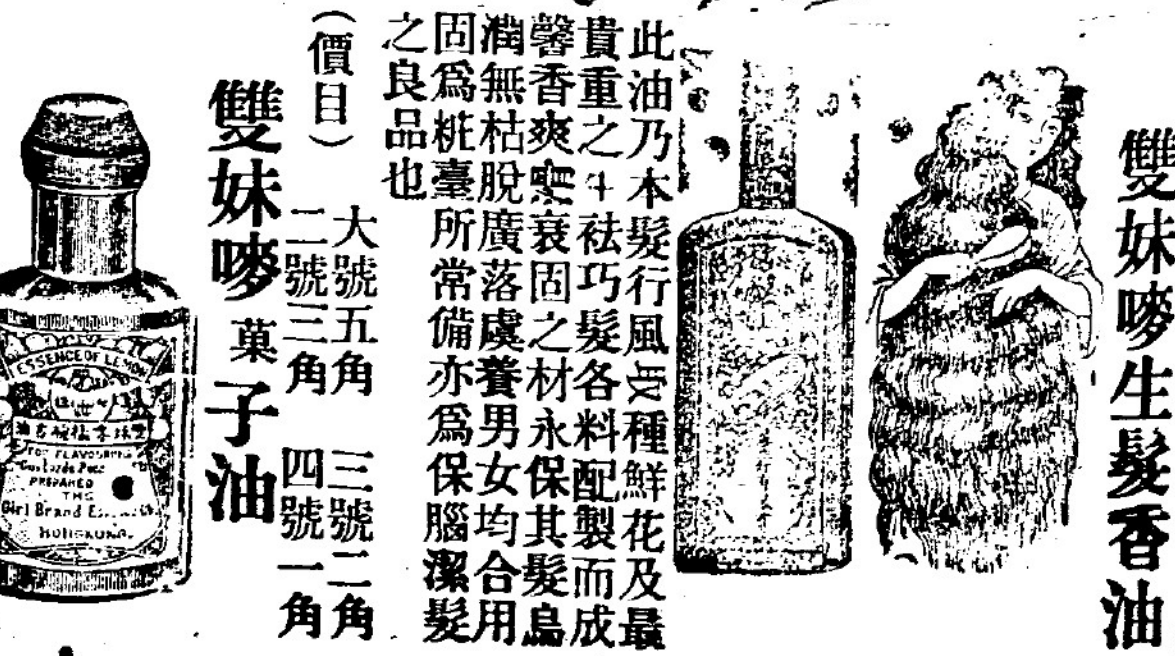 雙妹嘜生髮香油
此油乃本髮行風種鮮花及最
貴重之祛巧髮各料配製而成
馨香爽衰固之材永保其髮烏
潤無枯脫廣落虞養男女均合用
固爲粧臺所常備亦爲保腦潔髮
之良品也
(價目)
大號五角 三號二角
二號三角 四號一角
雙妹嘜菓子油
ESSENCE OF LEMON
FOR FLAVOURING
Custards
PREPARED
THE
Girl Brand
HONGKONG.